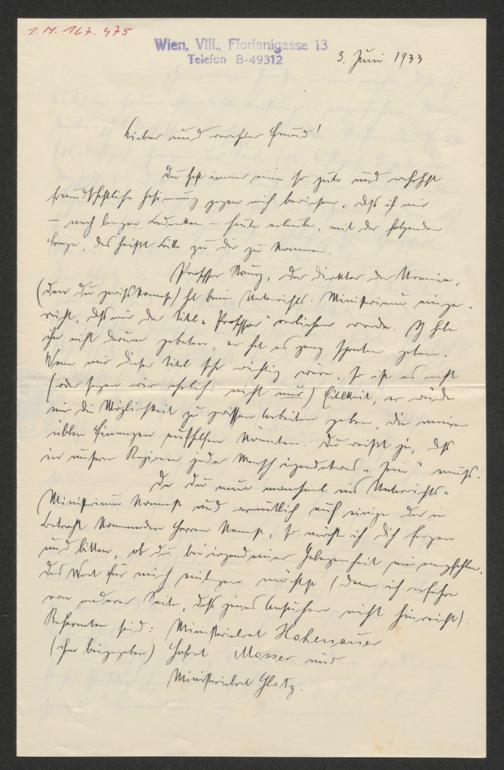 I.N. 167.475
Wien, VIII., Florianigasse 13
Telefon B-49312
3. Juni 1933
Lieber und verehrter Freund!
Du hast immer eine so gute und wahrhaft
freundschaftliche Gesinnung gegen mich bewiesen, daß ich mir
– nach langen Bedenken – heute erlaube, mit der folgenden
Frage, das heißt Bitte zu dir zu kommen.
Professor Nanz, der Direktor der Urania,
(den du gewiß kennst) hat beim Unterrichts-Ministerium einge-
reicht, daß mir der Titel "Professor" verliehen werde. Ich habe
ihn nicht darum gebeten, er hat es ganz spontan getan.
Wenn mir dieser Titel sehr wichtig wäre, so ist es nicht
(oder sagen wir ehrlich: nicht nur) Eitelkeit, er würde
mir die Möglichkeit zu gewissen Arbeiten geben, die meinen
üblen Finanzen aufhelfen könnten. Du weißt ja, daß
in unseren Regionen jeder Mensch irgendetwas "sein" muß.
Da du nun manchmal ins Unterrichts-
Ministerium kommst und vermutlich auch einige der in
Betracht kommenden Herren kennst, so möchte ich dich fragen
und bitten, ob du bei irgend einer Gelegenheit ein empfehlen-
des Wort für mich einlegen möchtest (denn ich erfahre
von anderer Seite, daß jenes Ansuchen nicht hinreicht).
Referenten sind: Ministerialrat Hohenauer
(ihm beigegeben) Hofrat Mosser und
Ministerialrat Glotz.